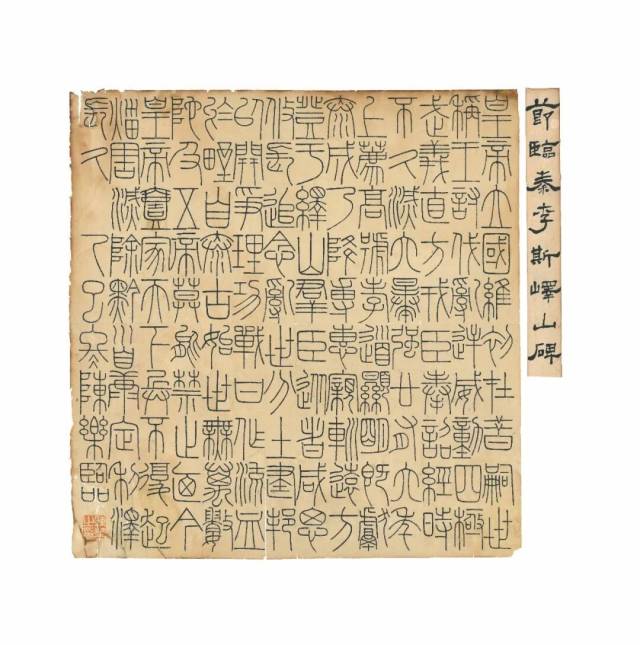 節臨秦李斯嶧山碑
皇帝立國維初在昔嗣世
稱王討伐亂逆威動四極
武義直方戎臣奉詔經時
不久滅六暴強廿有六年
上薦高號孝道顯明既獻
泰成乃降專惠親巡遠方
登于繹山群臣從者咸思
攸長追念亂世分土建邦
以開爭理功戰日作流血
於野自泰古始世無萬數
陀及五帝莫能禁止迺今
皇帝壹家天下兵不復起
災害滅除黔首康定利澤
長久
冬陳樂臨